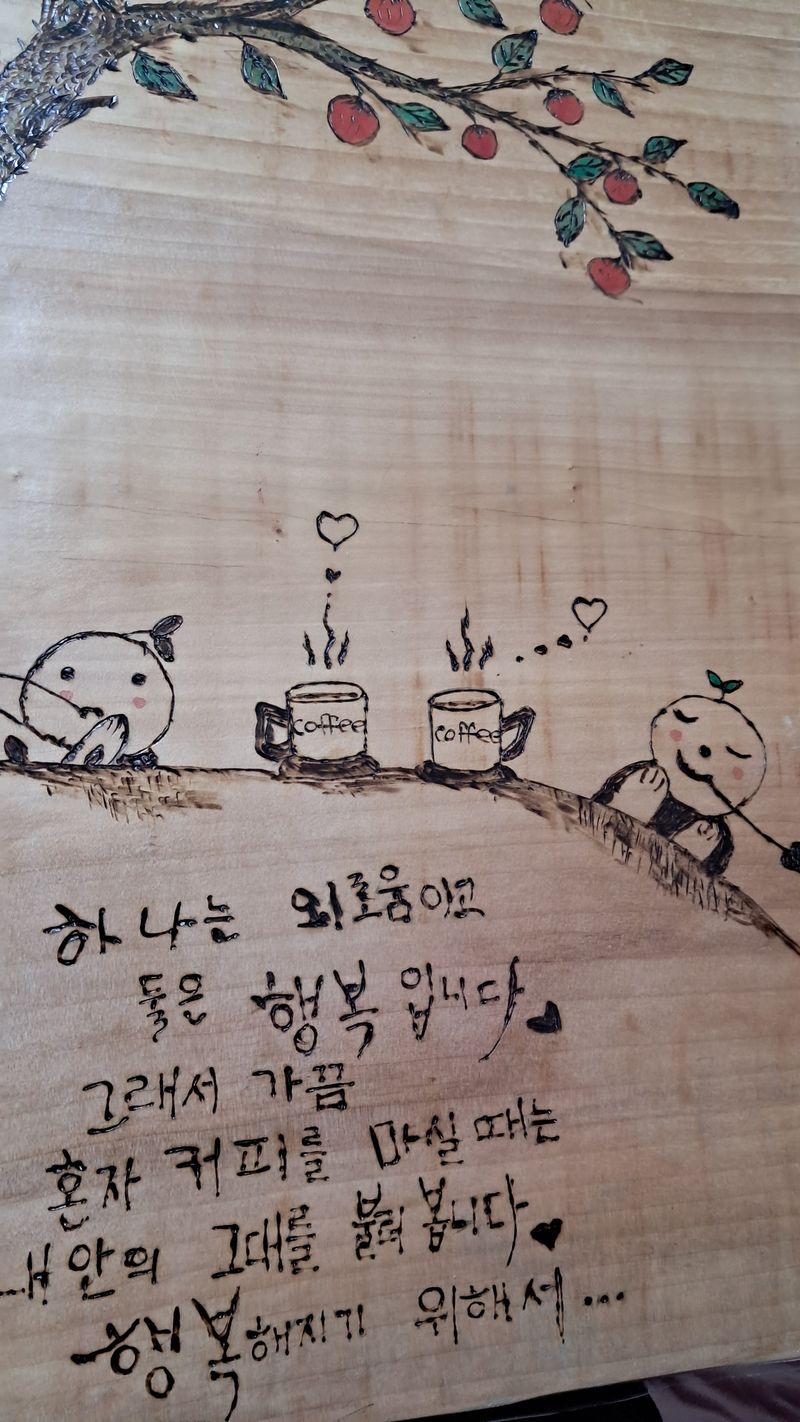 coffee
coffee
하나는 외로움이고
둘은 행복입니다
그래서 가끔
혼자 커피를 마실때는
내안의 그대를 불러봅니다
행복해지기 위해서...